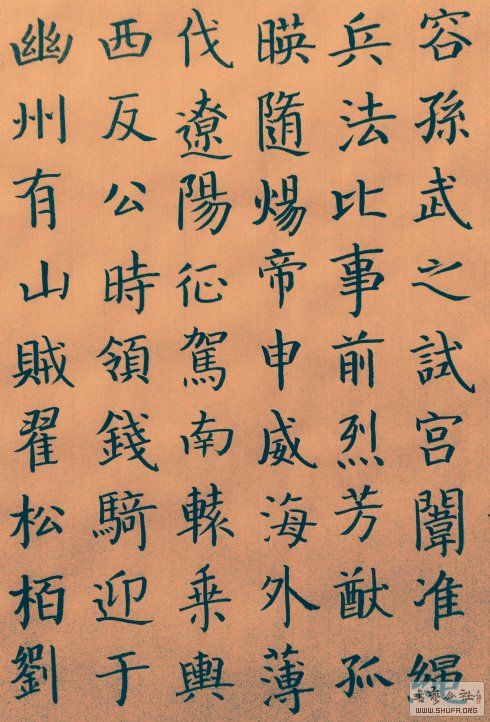 容孫武之試宮闈准繩
兵法比事前烈芳猷孤
暎隨煬帝申威海外薄
伐遼陽征駕南轅乘輿
西反公時領錢騎迎于
幽州有山賊翟松栢劉
書藝公社
WWW.SHUFA.ORG